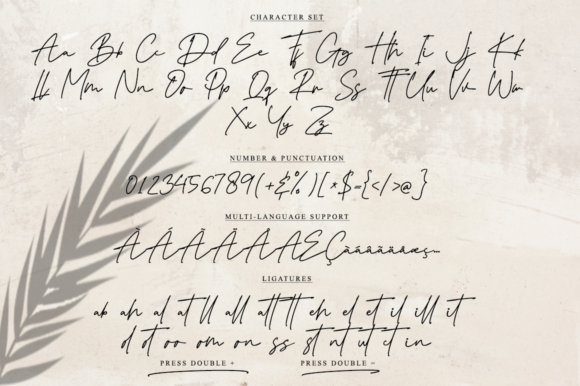 CHARACTER SET
Aa Bb Cc Dd Ee Ff Gg Hh Ii Jj Kk
Ll Mm Nn Oo Pp Qq Rr Ss Tt Uu Vv Ww
Xx Yy Zz
NUMBER & PUNCTUATION
0123456789(+&%)[*$={</>@}
MULTI-LANGUAGE SUPPORT
ÀÁÂÃÄÅÆÇàáâãäåæç...
LIGATURES
ab ah al at ll all att tt eh el et il ill it
ol ot oo om on ss st nt ut ct in
PRESS DOUBLE + PRESS DOUBLE =